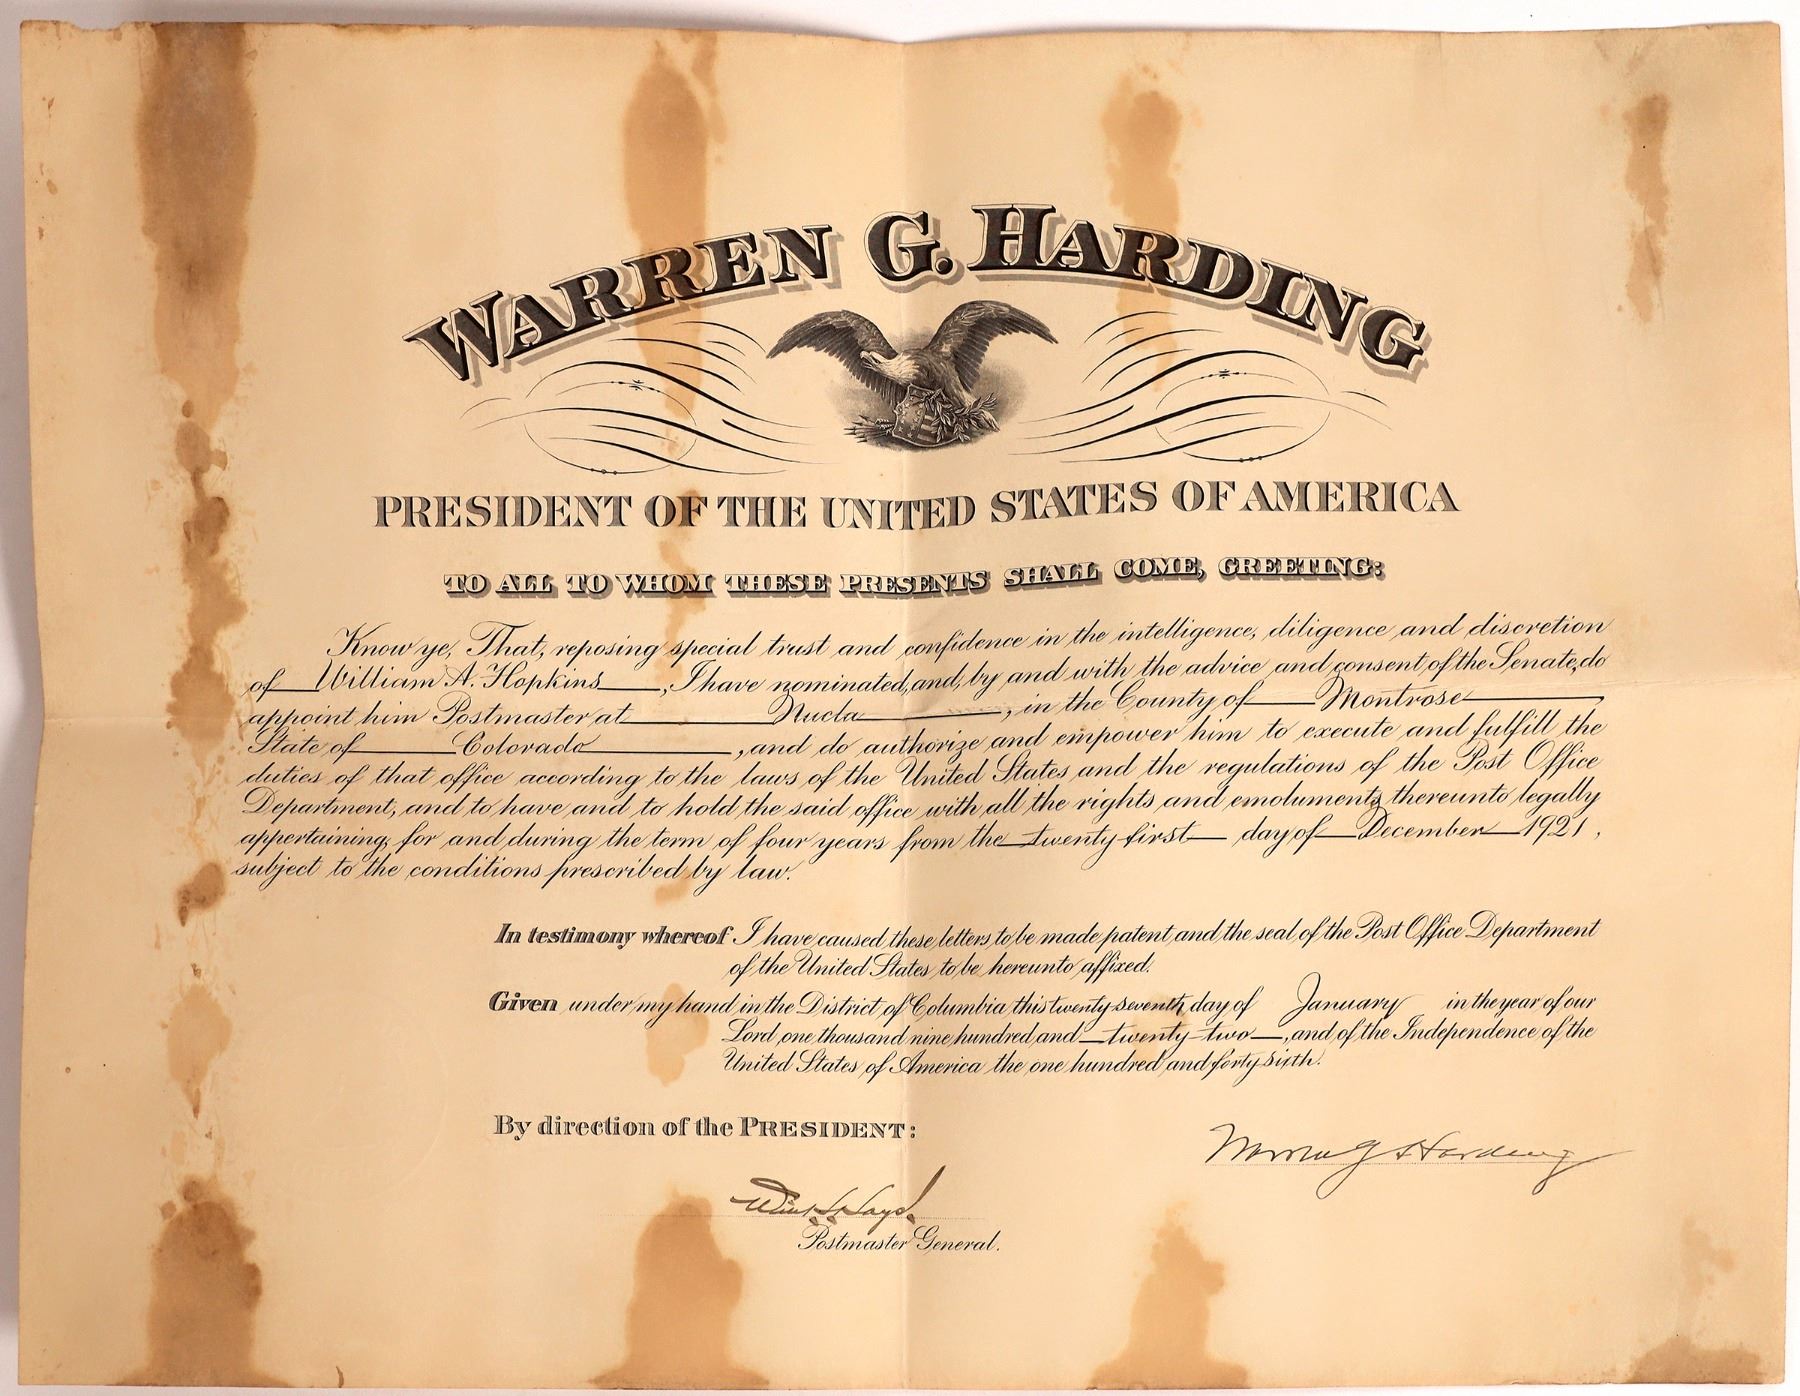 WARREN G. HARDING
PRESIDENT OF THE UNITED STATES OF AMERICA
TO ALL TO WHOM THESE PRESENTS SHALL COME, GREETING:
Know ye, That, reposing special trust and confidence in the intelligence, diligence and discretion
of William A. Hopkins, I have nominated, and, by and with the advice and consent of the Senate, do
appoint him Postmaster at Nucla, in the County of Montrose
State of Colorado, and do authorize and empower him to execute and fulfill the
duties of that office according to the laws of the United States and the regulations of the Post Office
Department, and to have and to hold the said office with all the rights and emoluments thereunto legally
appertaining, for and during the term of four years from the twenty-first day of December 1921,
subject to the conditions prescribed by law.
In testimony whereof I have caused these letters to be made patent and the seal of the Post Office Department
of the United States to be hereunto affixed.
Given under my hand in the District of Columbia this twenty seventh day of January in the year of our
Lord one thousand nine hundred and twenty-two, and of the Independence of the
United States of America the one hundred and forty sixth.
By direction of the PRESIDENT:
Warren G Harding
Will H. Hays.
Postmaster General.